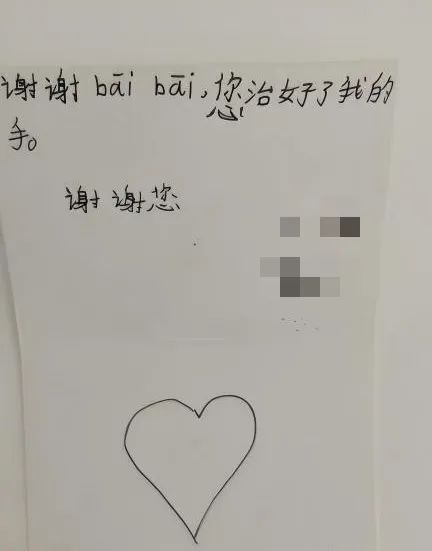 谢谢 bāi bāi,您治好了我的
手。
谢谢您